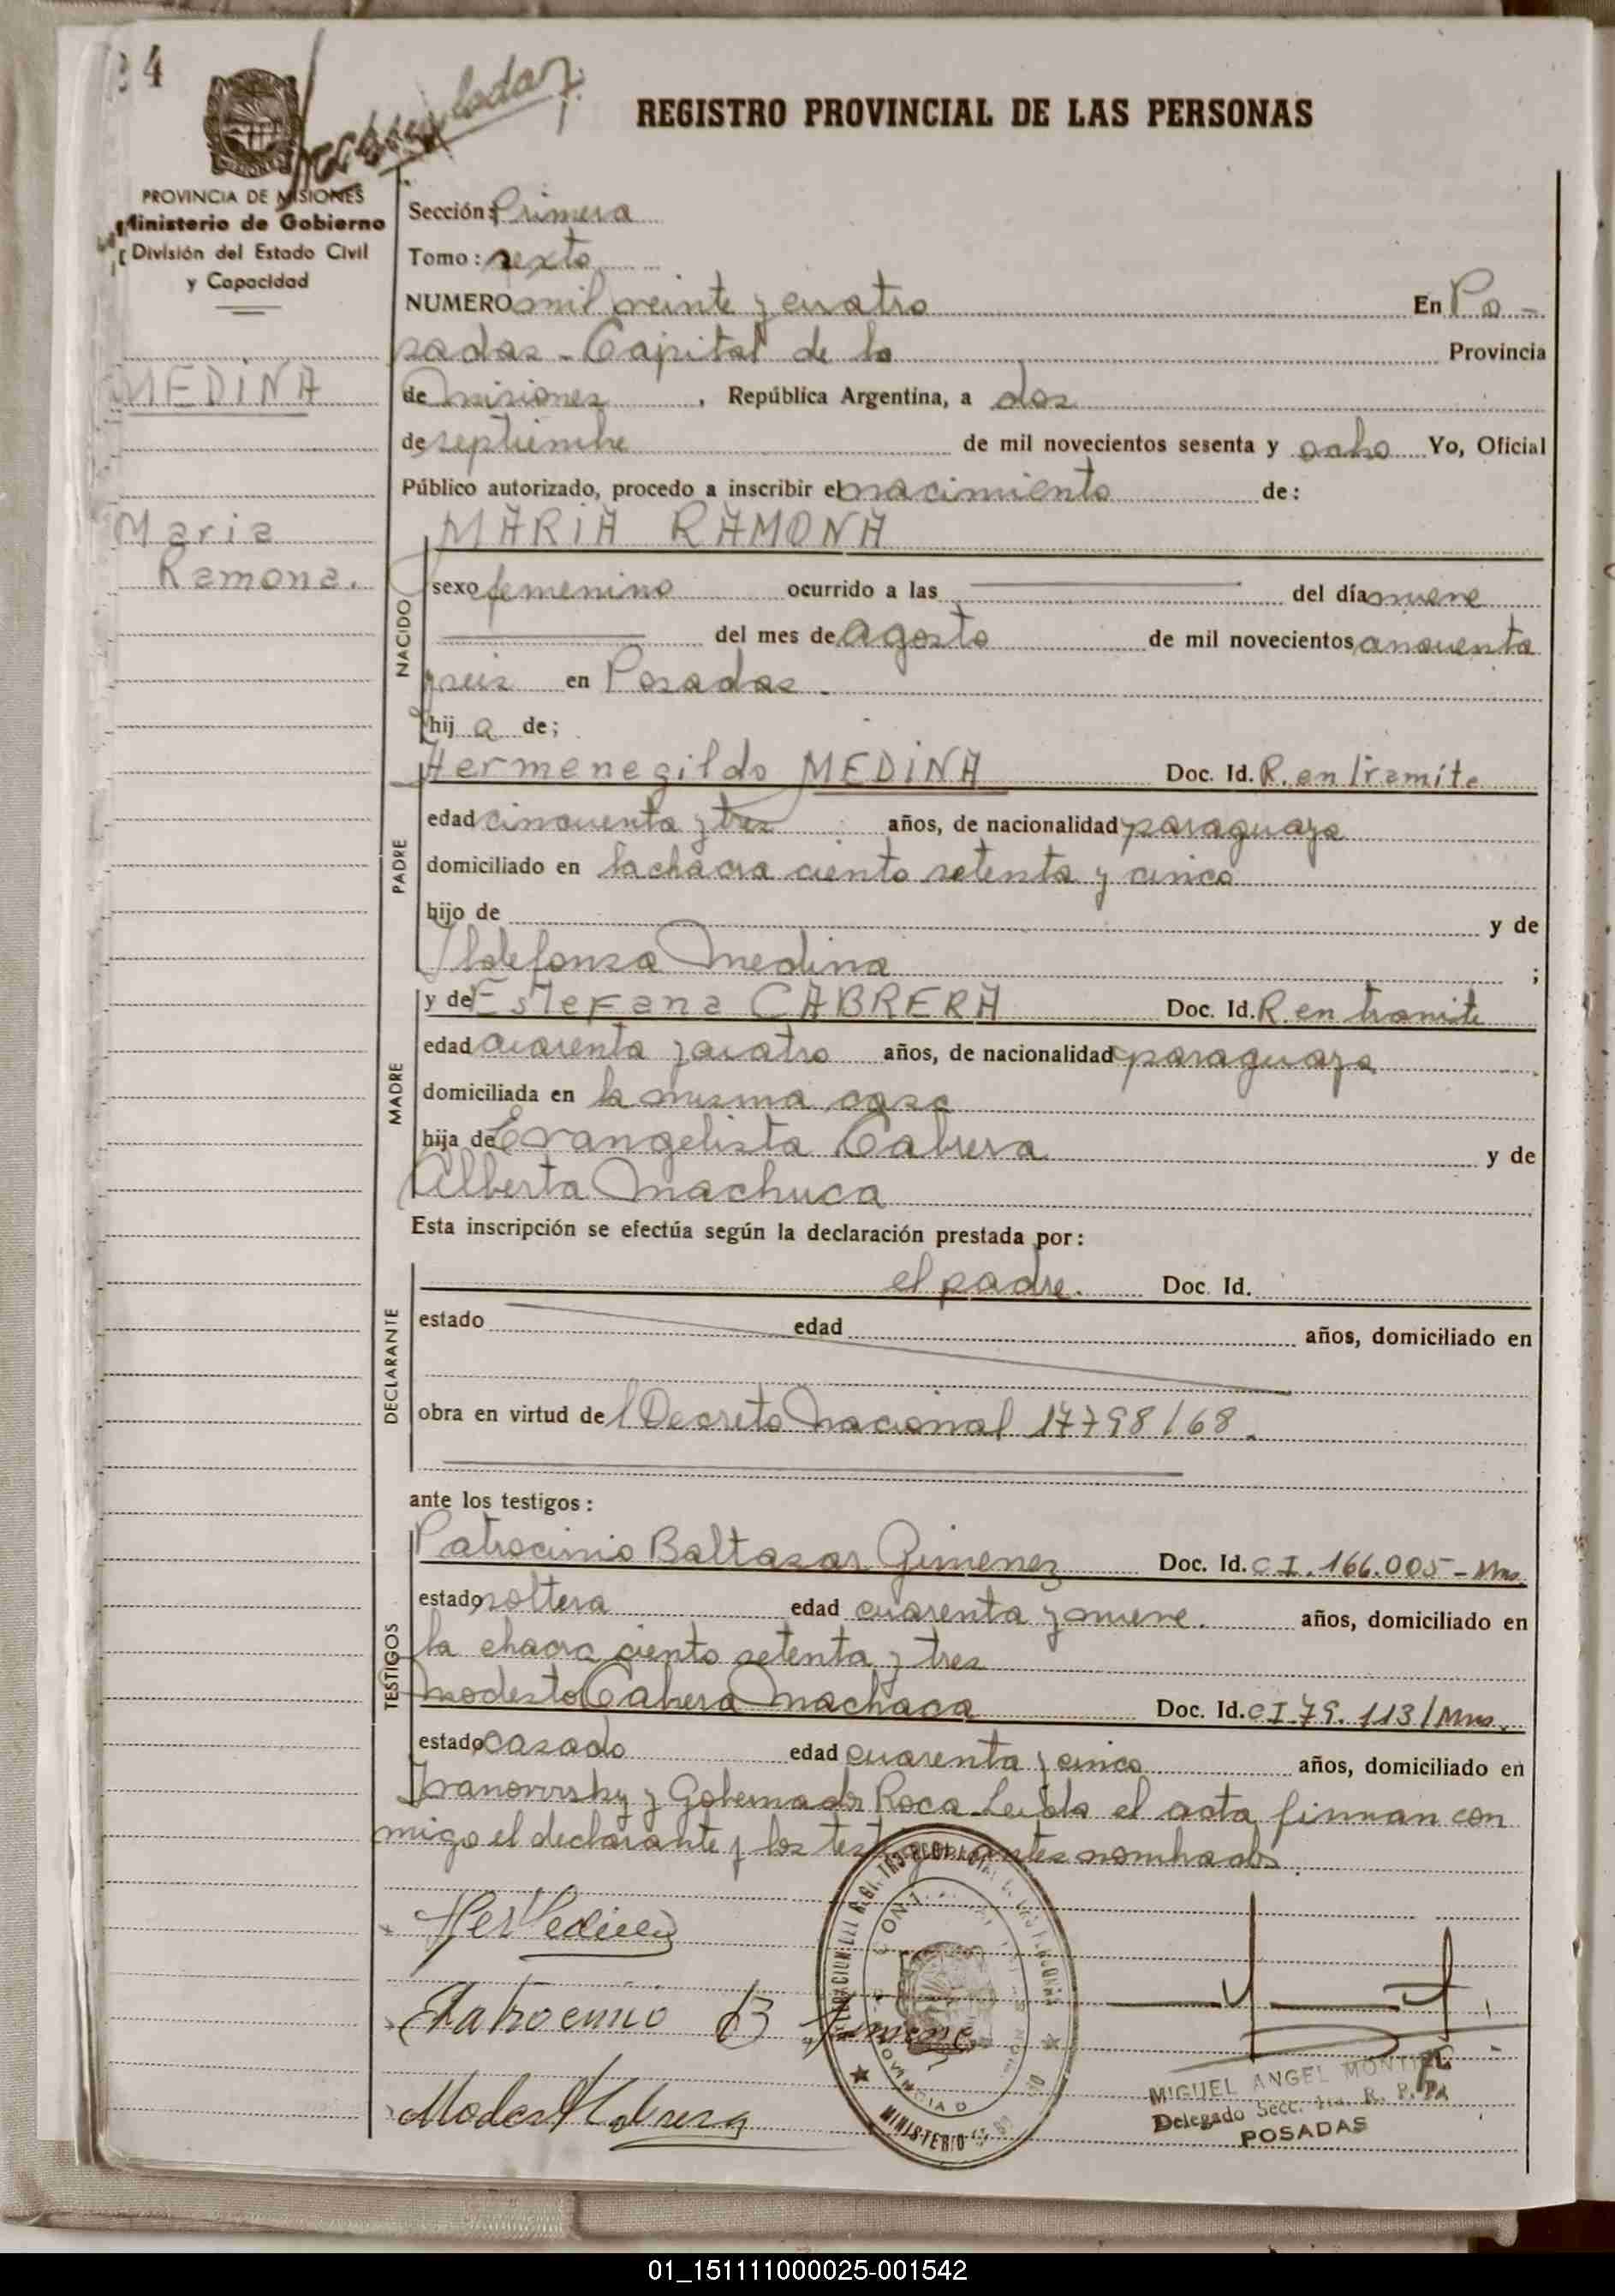 4
REGISTRO PROVINCIAL DE LAS PERSONAS
PROVINCIA DE MISIONES
Ministerio de Gobierno
División del Estado Civil
y Capacidad
MEDINA
Maria
Ramona.
Sección: Primera
Tomo: sexto
NUMERO mil veinte y cuatro En Po-
sadas - Capital de la Provincia
de Misiones, República Argentina, a dos
de septiembre de mil novecientos sesenta y ocho Yo, Oficial
Público autorizado, procedo a inscribir el nacimiento de:
MARIA RAMONA
NACIDO
sexo femenino ocurrido a las del día nueve
del mes de Agosto de mil novecientos cincuenta
y seis en Posadas.
hij a de;
Hermenegildo MEDINA Doc. Id. R. en tramite
PADRE
edad cincuenta y tres años, de nacionalidad paraguaya
domiciliado en la chacra ciento setenta y cinco
hijo de y de
Ildefonsa Medina ;
MADRE
y de Estefana CABRERA Doc. Id. R en tramite
edad cuarenta y cuatro años, de nacionalidad paraguaya
domiciliada en la misma casa
hija de Evangelista Cabrera y de
Alberta Machuca
Esta inscripción se efectúa según la declaración prestada por:
DECLARANTE
el padre. Doc. Id.
estado edad años, domiciliado en
obra en virtud de l Decreto Nacional 17798/68.
ante los testigos:
TESTIGOS
Patrocinio Baltasar Gimenez Doc. Id. C.I. 166.005 - Mns.
estado soltera edad cuarenta y nueve. años, domiciliado en
la chacra ciento setenta y tres
Modesto Cabrera Machuca Doc. Id. C I 79.113/Mns.
estado casado edad cuarenta y cinco años, domiciliado en
y Gobernador Roca. Leída el acta firman con
migo el declarante y los testigos antes nombrados.
Patrocinio B Jimenez
Modesto Cabrera
MINISTERIO
MIGUEL ANGEL MONTIEL
Delegado Secc. 1ra. R. P. P.
POSADAS
01_151111000025-001542